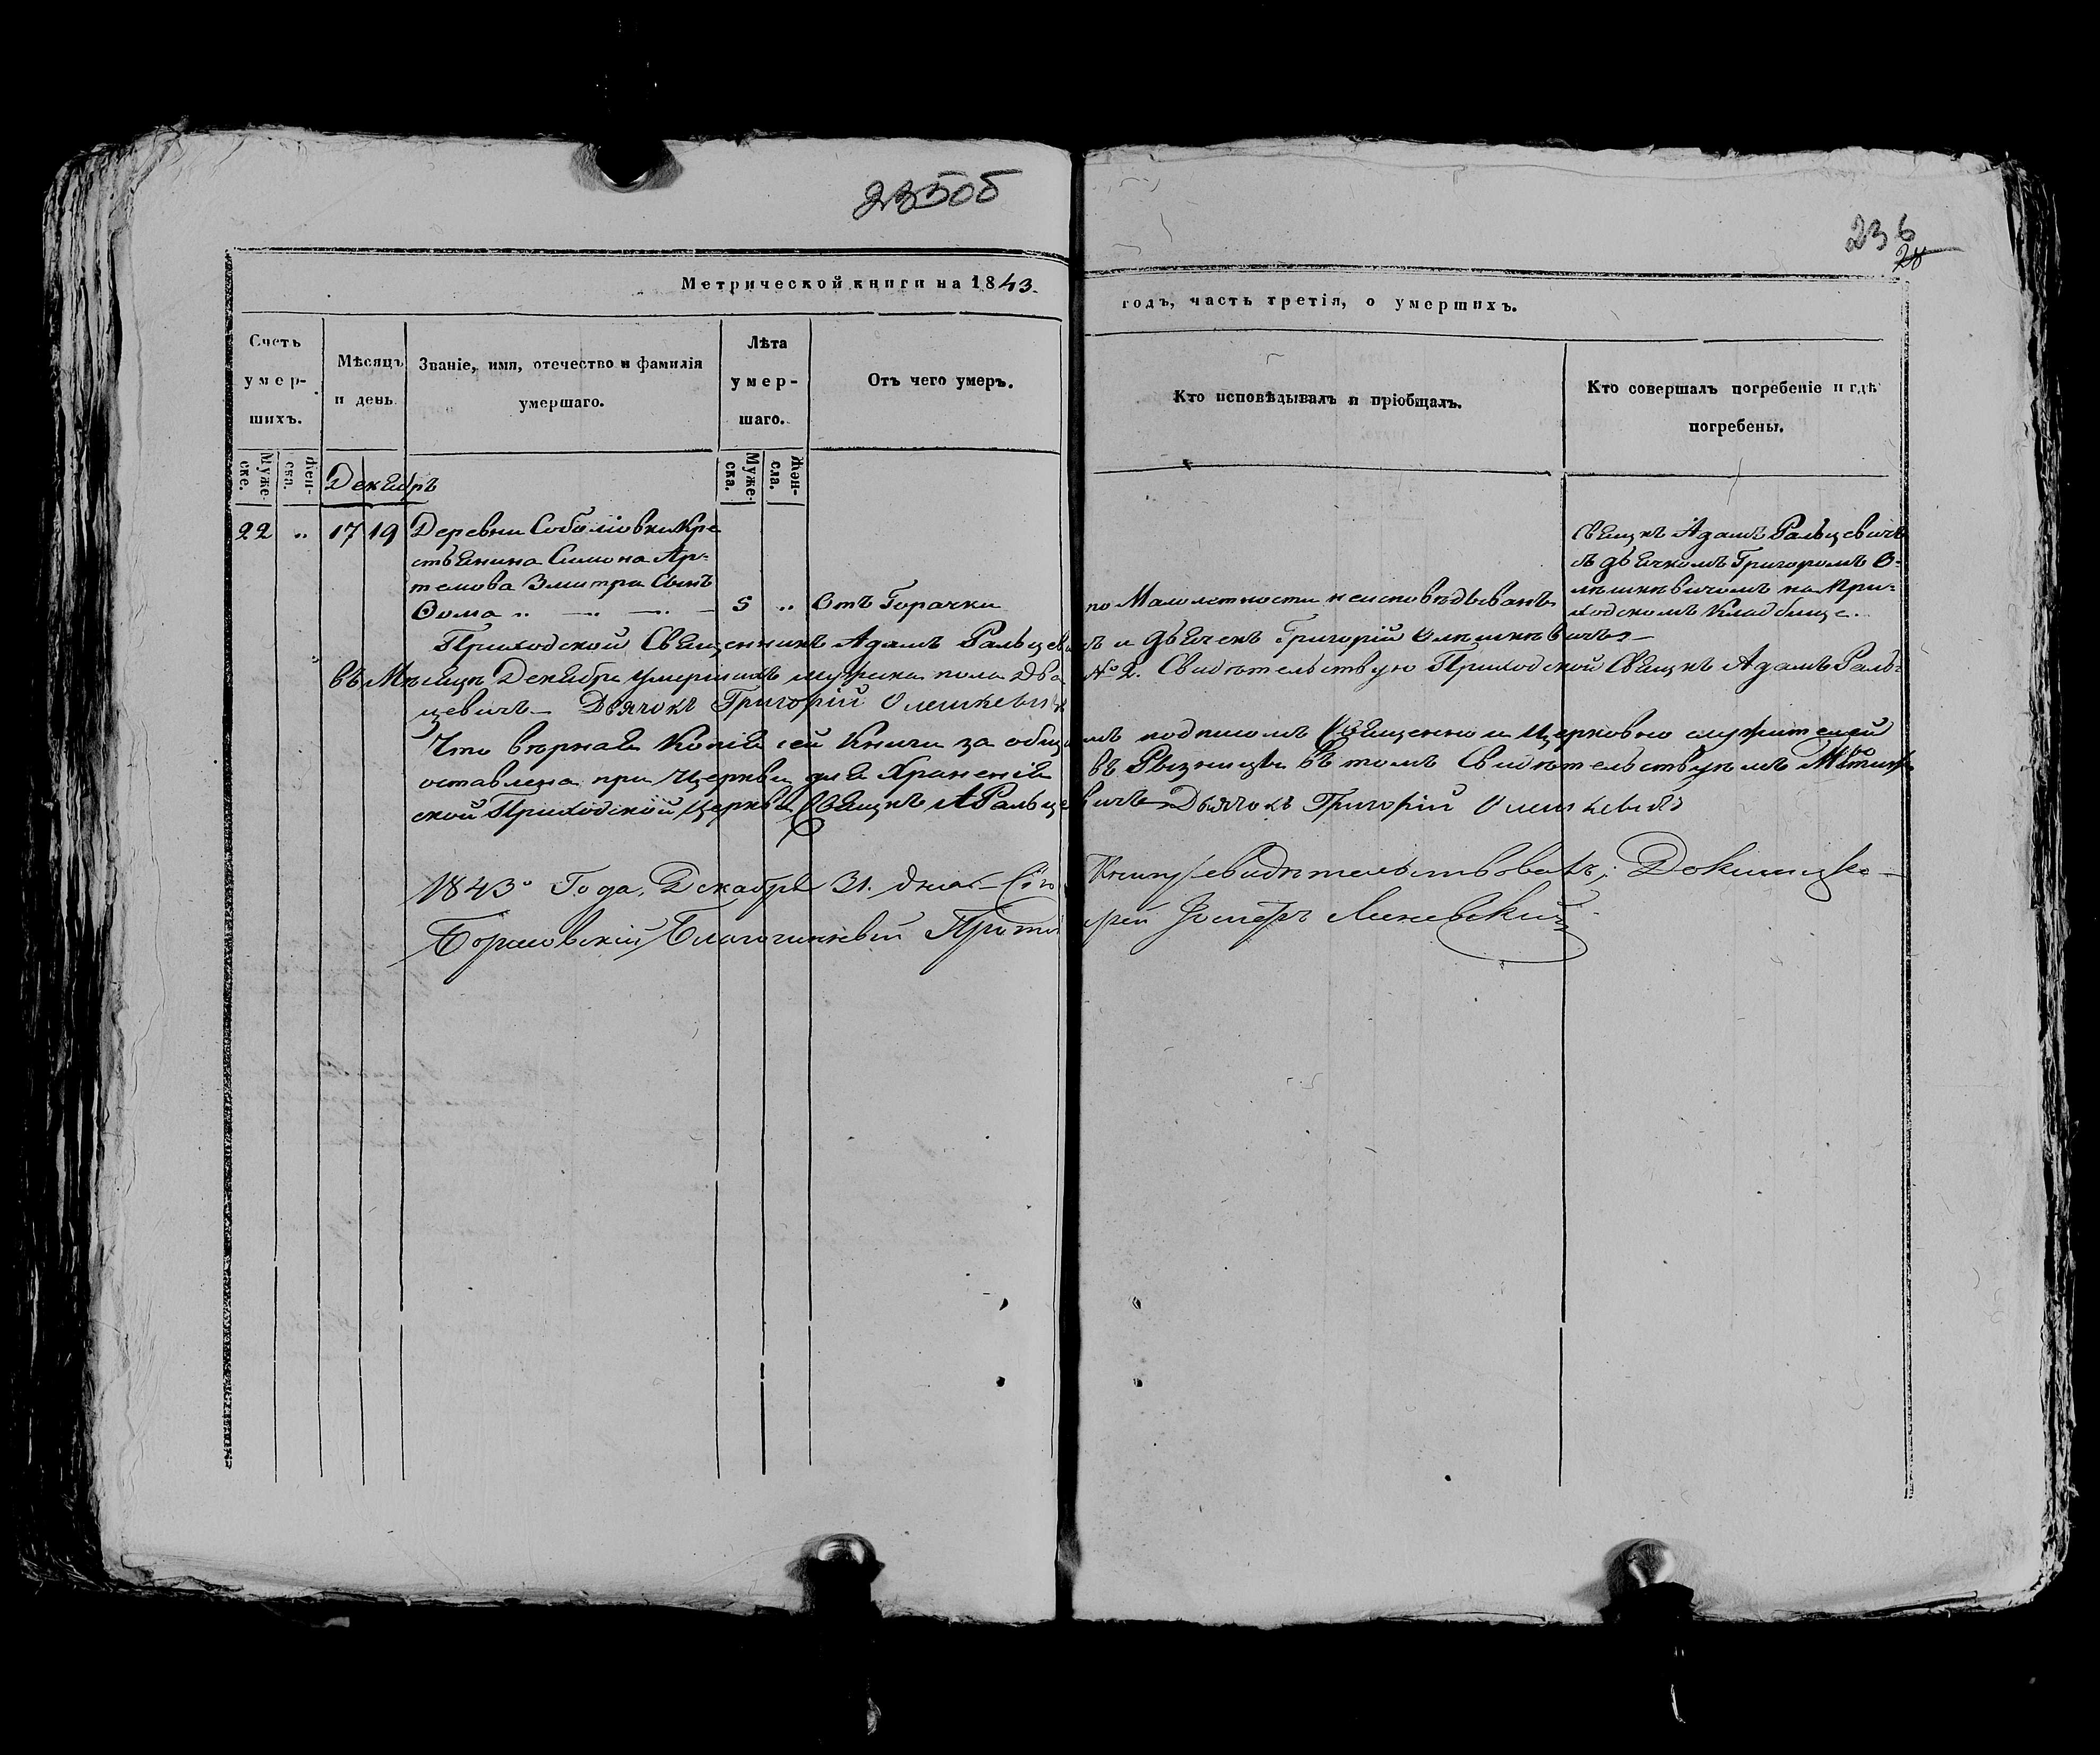 235об
236
28
Метрической книги на 1843.
годъ, часть третія, о умершихъ.
Счетъ умер-шихъ.
Мѣсяцъ и день.
Званіе, имя, отечество и фамилія умершаго.
Лѣта умер-шаго.
Отъ чего умеръ.
Кто исповѣдывалъ и пріобщалъ.
Кто совершалъ погребеніе и гдѣ погребены.
Муже-ске.
Жен-
Муже-ска.
Жен-
Декабрь
22 „ 17 19
Деревни Соболіовки Кре
стьянина Симона Ар-
темова Змитра Сынъ
Ѳома
5 „
Отъ Горачки
по Малолетности неисповѣдыванъ
Свящнъ АдамъРальцевичъ
съ дьячкомъ Григоромъ О-
лешкѣвичомъ на При-
ходскомъ Кладбище.
Приходской Священникъ Адамъ Ральцевичъ и дьячекъ Григорій Олешкѣвичъ
въ Мѣсяцѣ Декабрѣ умершихъ мужска пола два № 2. Свидѣтельствую Приходской Свящнъ Адамъ Раль-
цевичъ — Дьячокъ Григорій Олешкевичъ
Что вѣрная Копія сей Книги за общимъ подписомъ Священно и Церковно служителей
оставлена при Церкви для Храненія въ Рызницы въ томъ Свидѣтельствуемъ
ской Приходской Церкви Свящнъ А Ральцевичъ Дьячокъ Григорій Олешкевичъ
1843º Года, Декабря 31. дня — Сію Книгу свидѣтельствовалъ; Докшицко-
Борисовскій Благочинный Протоіерей Линевскій